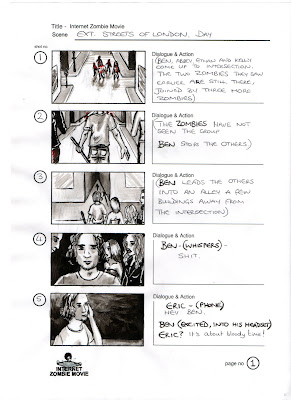 Title - Internet Zombie Movie
Scene EXT. STREETS OF LONDON. DAY
shot no
Dialogue & Action
1
(BEN, ABBEY, ETHAN AND KELLY
COME UP TO INTERSECTION.
THE TWO ZOMBIES THEY SAW
EARLIER ARE STILL THERE,
JOINED BY THREE MORE
ZOMBIES)
Dialogue & Action
2
(THE ZOMBIES HAVE NOT
SEEN THE GROUP
BEN STOPS THE OTHERS)
Dialogue & Action
3
(BEN LEADS THE OTHERS
INTO AN ALLEY A FEW
BUILDINGS AWAY FROM
THE INTERSECTION)
Dialogue & Action
4
BEN-(WHISPERS)-
SHIT.
Dialogue & Action
5
ERIC - (PHONE)
HEY BEN.
BEN (EXCITED, INTO HIS HEADSET)
ERIC? It's about bloody time!
INTERNET
ZOMBIE MOVIE
page no 1